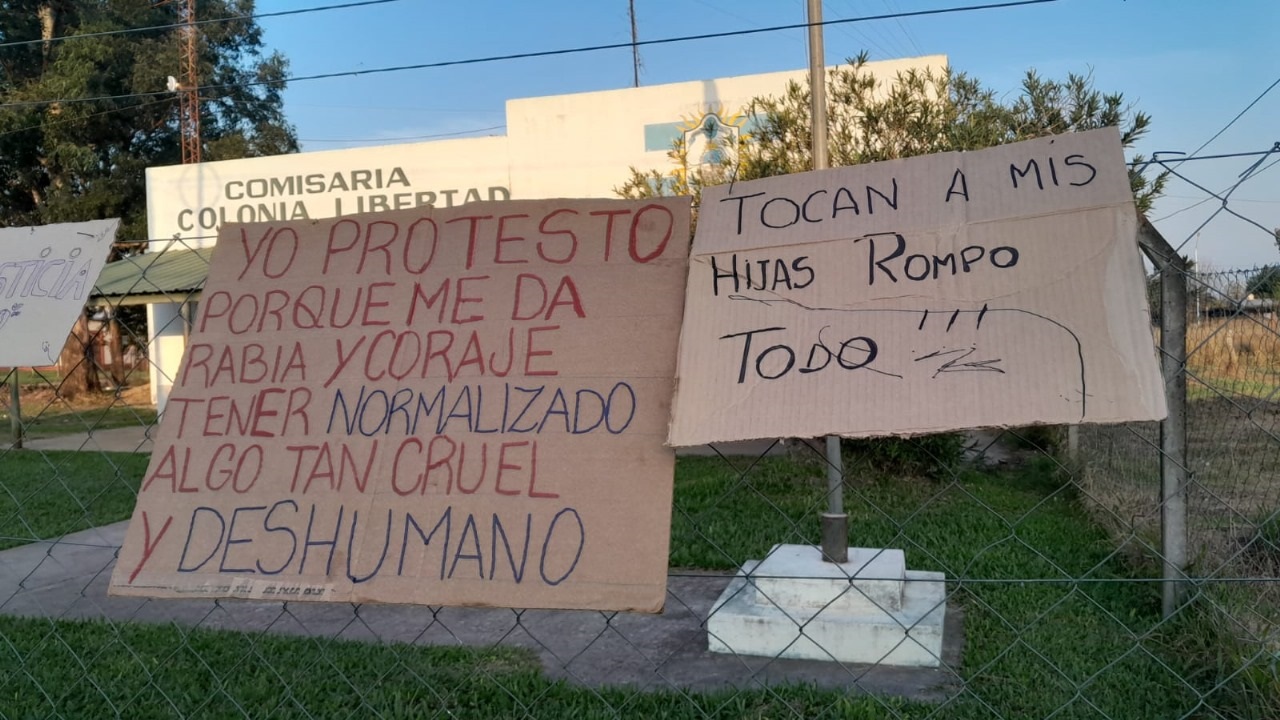 COMISARIA
COLONIA LIBERTAD
STICIA
YO PROTESTO
PORQUE ME DA
RABIA Y CORAJE
TENER NORMALIZADO
ALGO TAN CRUEL
Y DESHUMANO
TOCAN A MIS
HIJAS ROMPO
TODO !!!